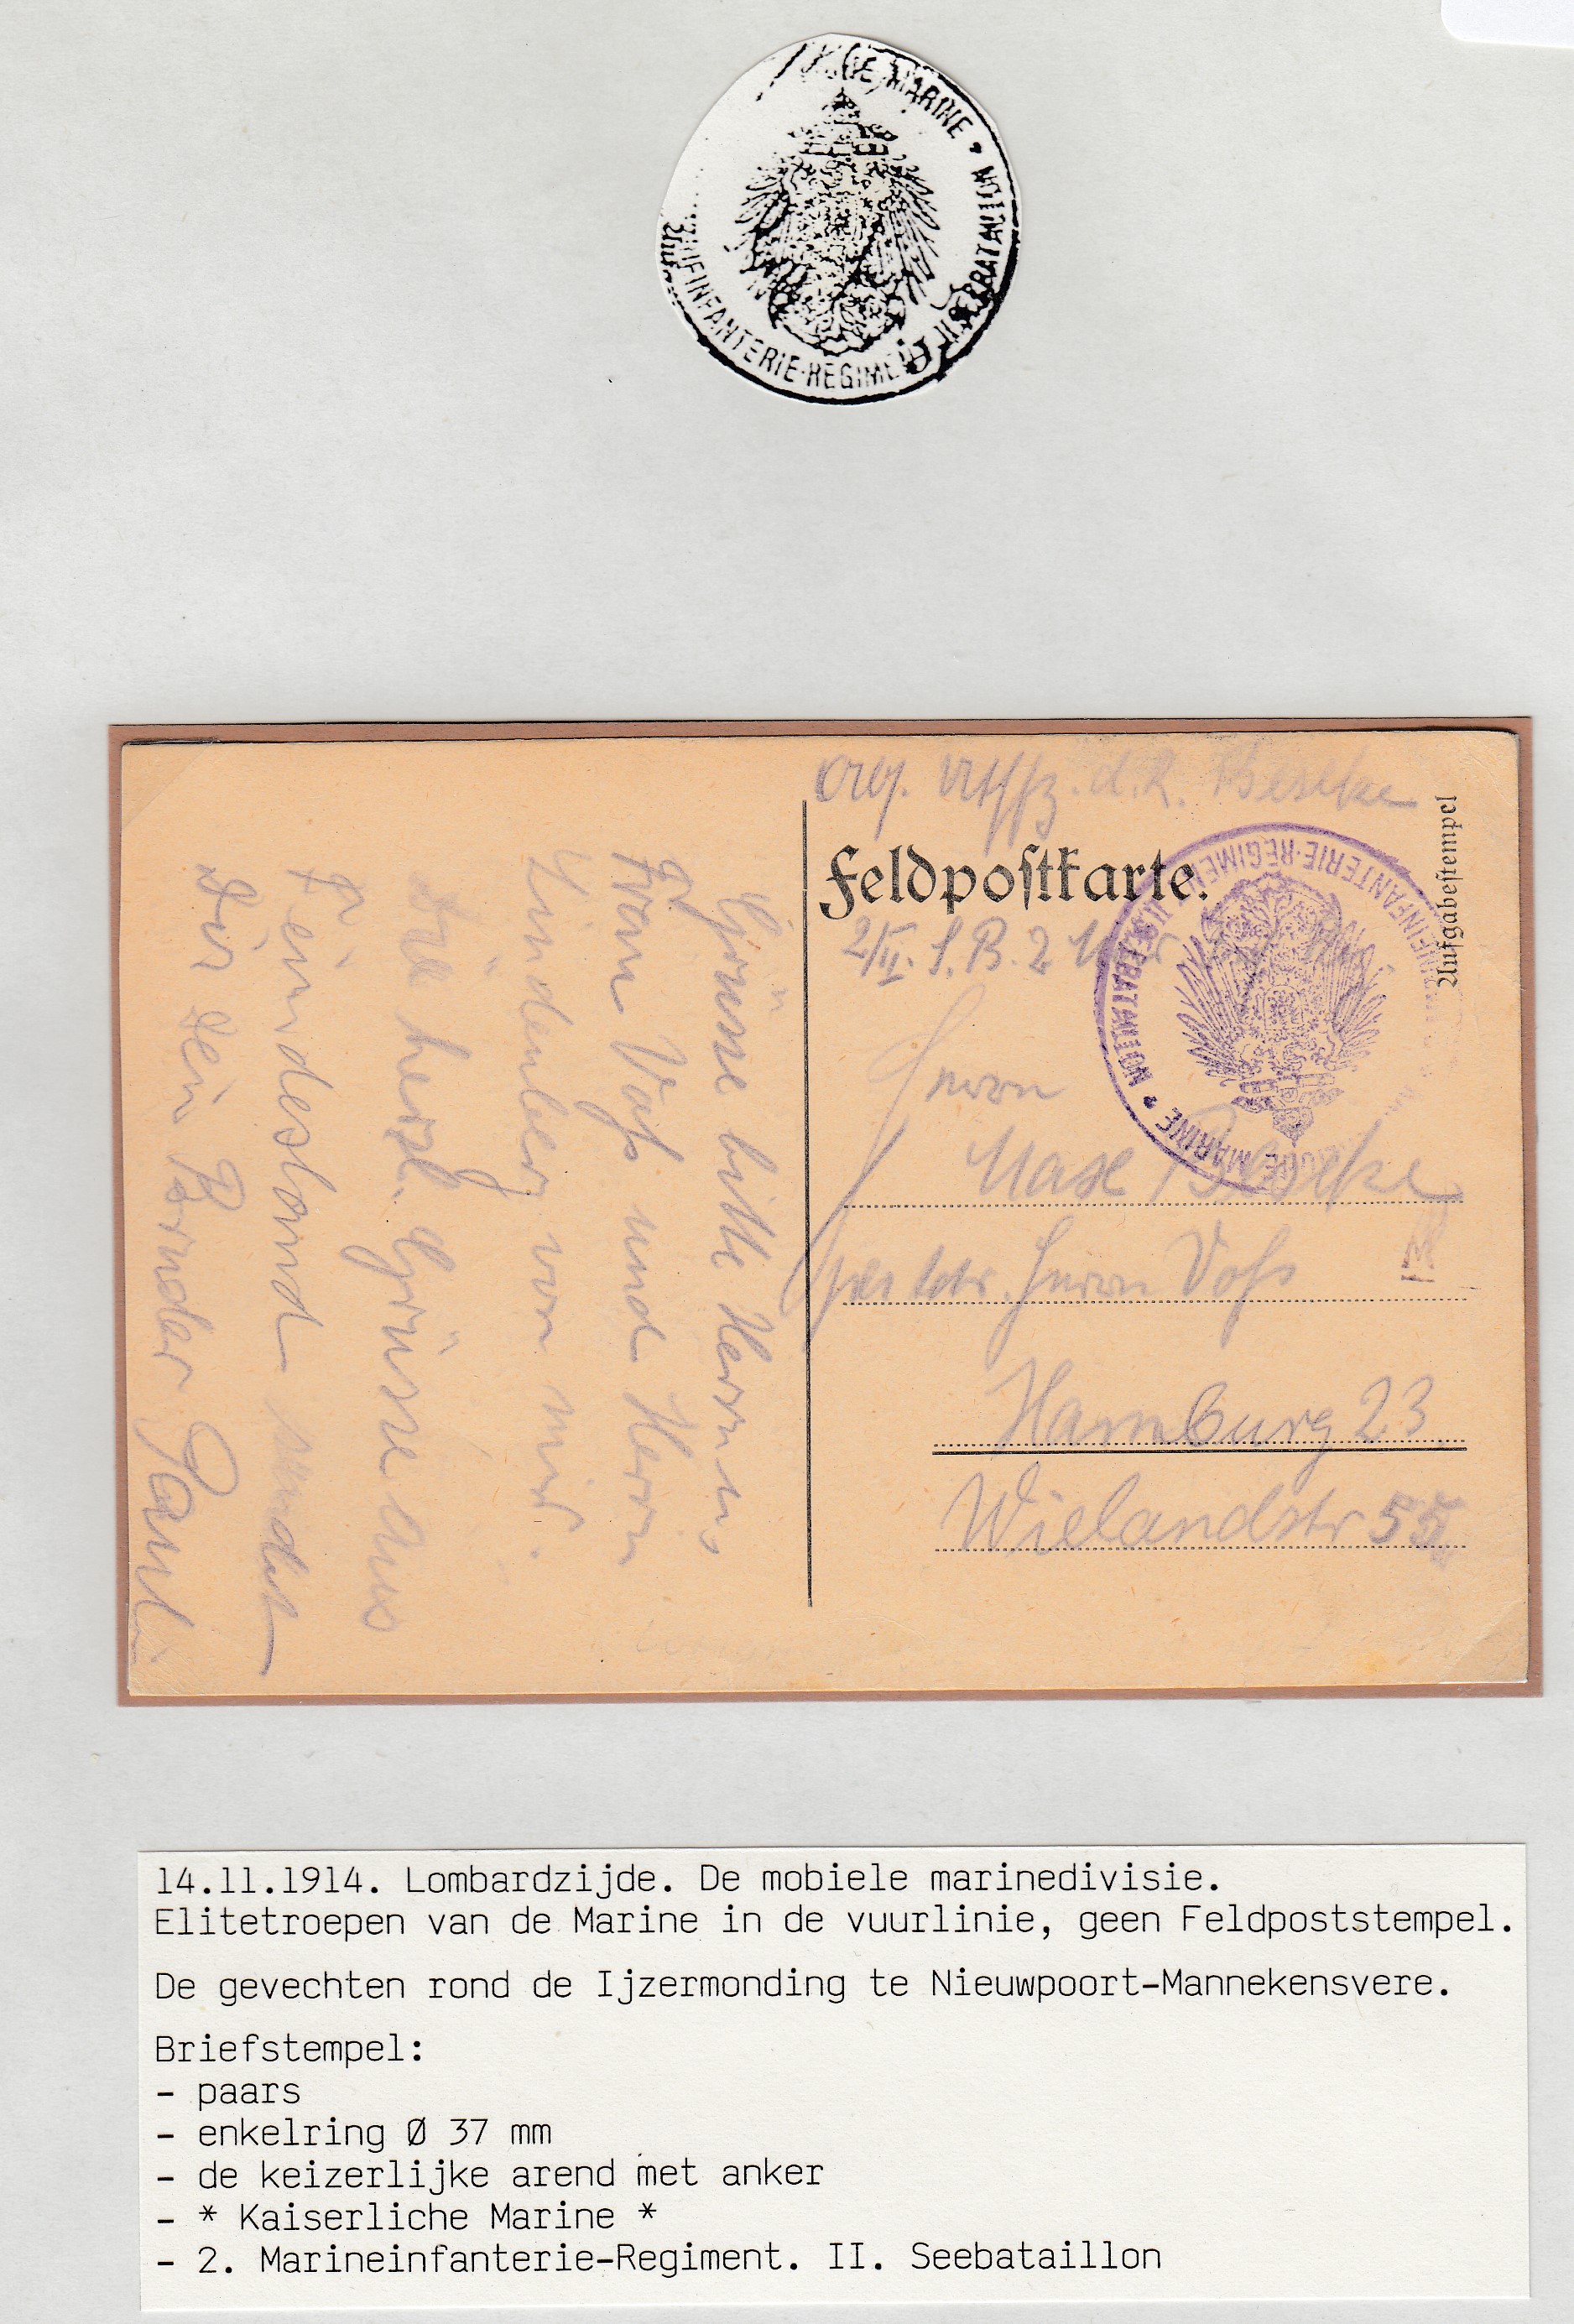 MARINE • II.SEEBATAILLON
INFANTERIE-REGIMENT
Utffz. d. R. Beseke
Feldpostkarte.
Aufgabestempel
2/II. S. B. 2
MARINE • II.SEEBATAILLON
INFANTERIE-REGIMENT
Herrn
Max Beseke
per Adr. Herrn Voß
Hamburg 23
Wielandstr 55
Die herzl. Grüsse aus
Feindesland sendet
Dir Dein Bruder Paul.
Grüsse bitte Herrn u
Frau Voß und Herrn
Lindenberg von mir.
14.11.1914. Lombardzijde. De mobiele marinedivisie.
Elitetroepen van de Marine in de vuurlinie, geen Feldpoststempel.
De gevechten rond de Ijzermonding te Nieuwpoort-Mannekensvere.
Briefstempel:
- paars
- enkelring Ø 37 mm
- de keizerlijke arend met anker
- * Kaiserliche Marine *
- 2. Marineinfanterie-Regiment. II. Seebataillon